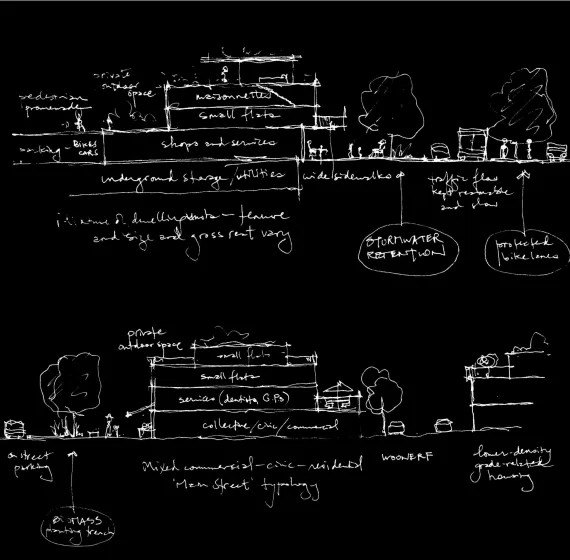 private
outdoor
space
pedestrian
promenade
maisonnettes
small flats
parking - BIKES
CARS
shops and services
underground storage/utilities
wide sidewalks
traffic flow
kept reasonable
and slow
tenure
and size and gross rent vary
STORMWATER
RETENTION
protected
bike lanes
private
outdoor space
small flats
small flats
services (dentists, G.P.s)
collective/civic/commercial
on street
parking
Mixed commercial-civic-residential
'Main Street' typology
WOONERF
lower-density
grade-related
housing
BIOMASS
planting trench